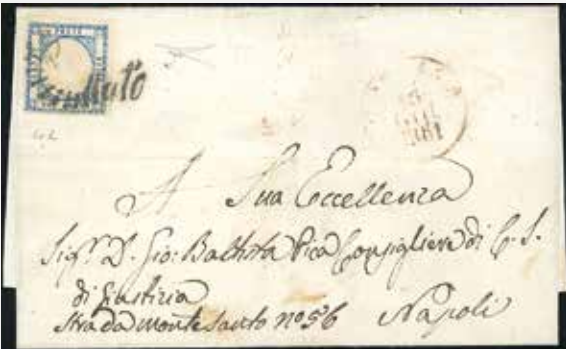 POSTA
annullato
1861
A Sua Eccellenza
Sigr. D. Gio: Battista Pica Consigliere di C. S.
di Giustizia
Strada Monte Santo no 56 Napoli